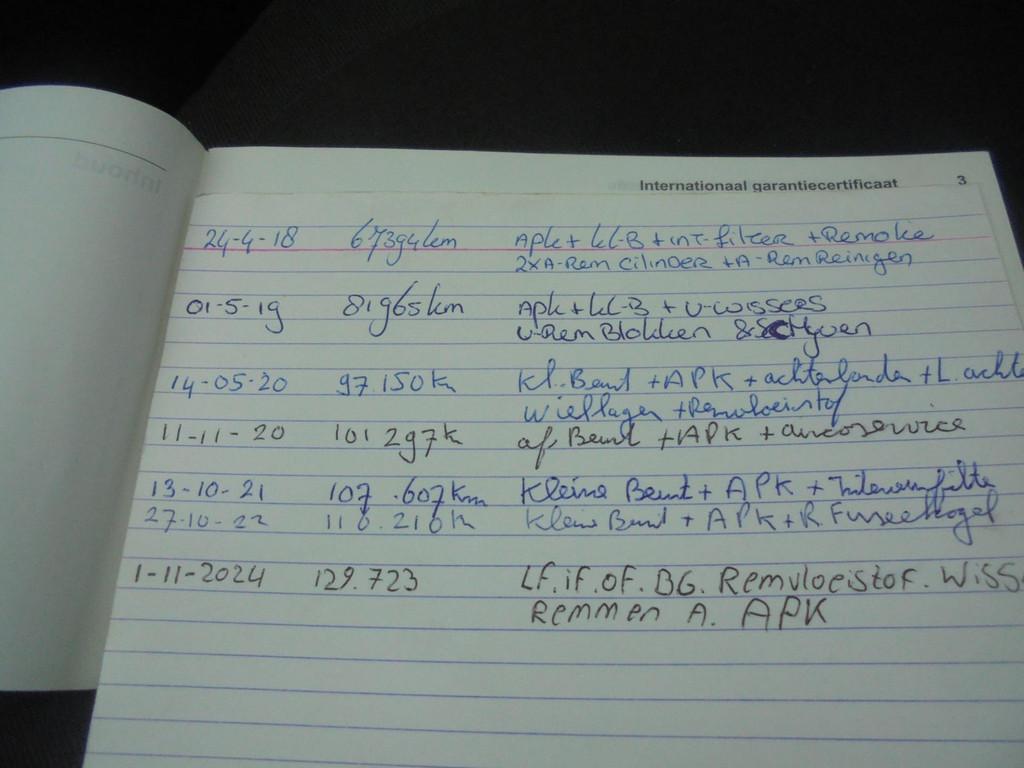 Inhoud
Internationaal garantiecertificaat 3
24-4-18 67394km Apk + kl-B + int-filter + Remolie
2xA-Rem Cilinder + A-Rem Reinigen
01-5-19 81965km Apk + kl-B + V-wissers
V-Rem Blokken & SCHyven
14-05-20 97.150km Kl. Beurt + APK + achterbanden + L. achte
wiellager + Remvloeistof
11-11-20 101297k af Beurt + APK + aircoservice
13-10-21 107.607Km Kleine Beurt + APK + Interieurfilte
27-10-22 116.216k Kleine Beurt + APK + R Fuseekogel
1-11-2024 129.723 LF. iF. OF. BG. Remvloeistof. Wiss
Remmen A. APK